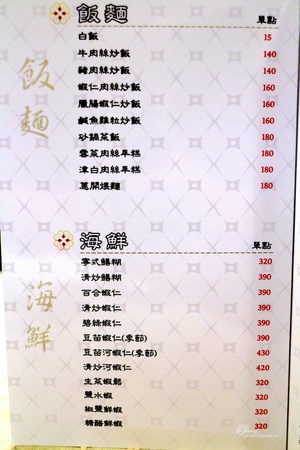 飯麵 單點
白飯 15
牛肉絲炒飯 140
豬肉絲炒飯 140
蝦仁肉絲炒飯 160
臘腸蝦仁炒飯 160
鹹魚雞粒炒飯 160
砂鍋菜飯 180
雪菜肉絲年糕 180
津白肉絲年糕 180
蔥開煨麵 180
飯麵
海鮮 單點
寧式鱔糊 320
清炒鱔糊 390
百合蝦仁 390
清炒蝦仁 390
碧綠蝦仁 390
豆苗蝦仁(季節) 390
豆苗河蝦仁(季節) 430
清炒河蝦仁 420
生菜蝦鬆 320
鹽水蝦 320
椒鹽鮮蝦 320
糖醋鮮蝦 320
海鮮